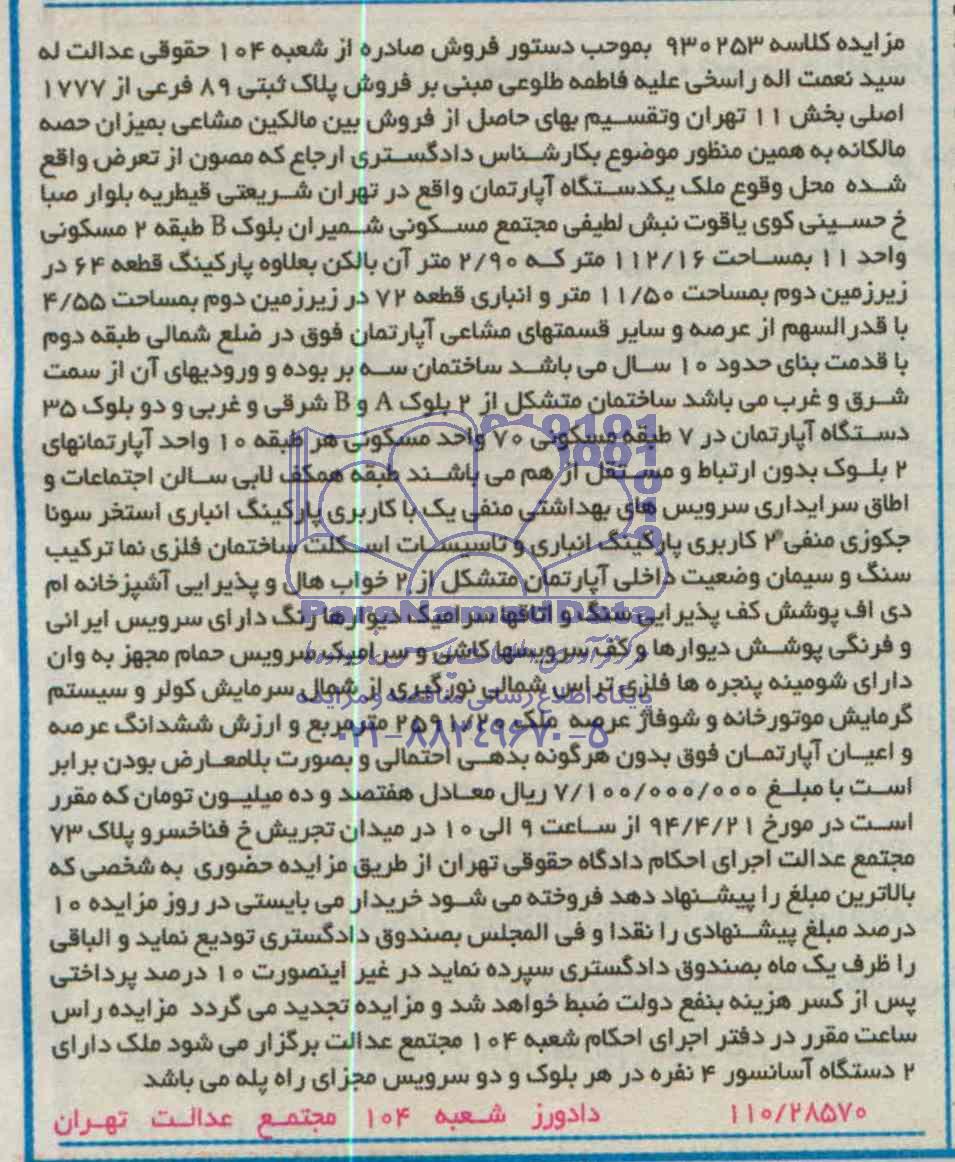 مزایده کلاسه ۹۳۰۲۵۳ بموجب دستور فروش صادره از شعبه ۱۰۴ حقوقی عدالت له
سید نعمت اله راسخی علیه فاطمه طلوعی مبنی بر فروش پلاک ثبتی ۸۹ فرعی از ۱۷۷۷
اصلی بخش ۱۱ تهران وتقسیم بهای حاصل از فروش بین مالکین مشاعی بمیزان حصه
مالکانه به همین منظور موضوع بکارشناس دادگستری ارجاع که مصون از تعرض واقع
شده محل وقوع ملک یکدستگاه آپارتمان واقع در تهران شریعتی قیطریه بلوار صبا
خ حسینی کوی یاقوت نبش لطیفی مجتمع مسکونی شمیران بلوک B طبقه ۲ مسکونی
واحد ۱۱ بمساحت ۱۱۲/۱۶ متر که ۲/۹۰ متر آن بالکن بعلاوه پارکینگ قطعه ۶۴ در
زیرزمین دوم بمساحت ۱۱/۵۰ متر و انباری قطعه ۷۲ در زیرزمین دوم بمساحت ۴/۵۵
با قدرالسهم از عرصه و سایر قسمتهای مشاعی آپارتمان فوق در ضلع شمالی طبقه دوم
با قدمت بنای حدود ۱۰ سال می باشد ساختمان سه بر بوده و ورودیهای آن از سمت
شرق و غرب می باشد ساختمان متشکل از ۲ بلوک A و B شرقی و غربی و دو بلوک ۳۵
دستگاه آپارتمان در ۷ طبقه مسکونی ۷۰ واحد مسکونی هر طبقه ۱۰ واحد آپارتمانهای
۲ بلوک بدون ارتباط و مستقل از هم می باشند طبقه همکف لابی سالن اجتماعات و
اطاق سرایداری سرویس های بهداشتی منفی یک با کاربری پارکینگ انباری استخر سونا
جکوزی منفی ۲ کاربری پارکینگ انباری و تاسیسات اسکلت ساختمان فلزی نما ترکیب
سنگ و سیمان وضعیت داخلی آپارتمان متشکل از ۲ خواب هال و پذیرایی آشپزخانه ام
دی اف پوشش کف پذیرایی سنگ و اتاقها سرامیک دیوارها رنگ دارای سرویس ایرانی
و فرنگی پوشش دیوارها و کف سرویسها کاشی و سرامیک سرویس حمام مجهز به وان
دارای شومینه پنجره ها فلزی تراس شمالی نورگیری از شمال سرمایش کولر و سیستم
گرمایش موتورخانه و شوفاژ عرصه ملک ۲۵۹۱/۲۰ مترمربع و ارزش ششدانگ عرصه
و اعیان آپارتمان فوق بدون هرگونه بدهی احتمالی و بصورت بلامعارض بودن برابر
است با مبلغ ۷/۱۰۰/۰۰۰/۰۰۰ ریال معادل هفتصد و ده میلیون تومان که مقرر
است در مورخ ۹۴/۴/۲۱ از ساعت ۹ الی ۱۰ در میدان تجریش خ فناخسرو پلاک ۷۳
مجتمع عدالت اجرای احکام دادگاه حقوقی تهران از طریق مزایده حضوری به شخصی که
بالاترین مبلغ را پیشنهاد دهد فروخته می شود خریدار می بایستی در روز مزایده ۱۰
درصد مبلغ پیشنهادی را نقدا و فی المجلس بصندوق دادگستری تودیع نماید و الباقی
را ظرف یک ماه بصندوق دادگستری سپرده نماید در غیر اینصورت ۱۰ درصد پرداختی
پس از کسر هزینه بنفع دولت ضبط خواهد شد و مزایده تجدید می گردد مزایده راس
ساعت مقرر در دفتر اجرای احکام شعبه ۱۰۴ مجتمع عدالت برگزار می شود ملک دارای
۲ دستگاه آسانسور ۴ نفره در هر بلوک و دو سرویس مجزای راه پله می باشد
۱۱۰/۲۸۵۷۰ دادورز شعبه ۱۰۴ مجتمع عدالت تهران
ParsNamadData
پایگاه اطلاع رسانی مناقصه و مزایده
۰۲۱-۸۸۳۴۹۶۷۰-۵